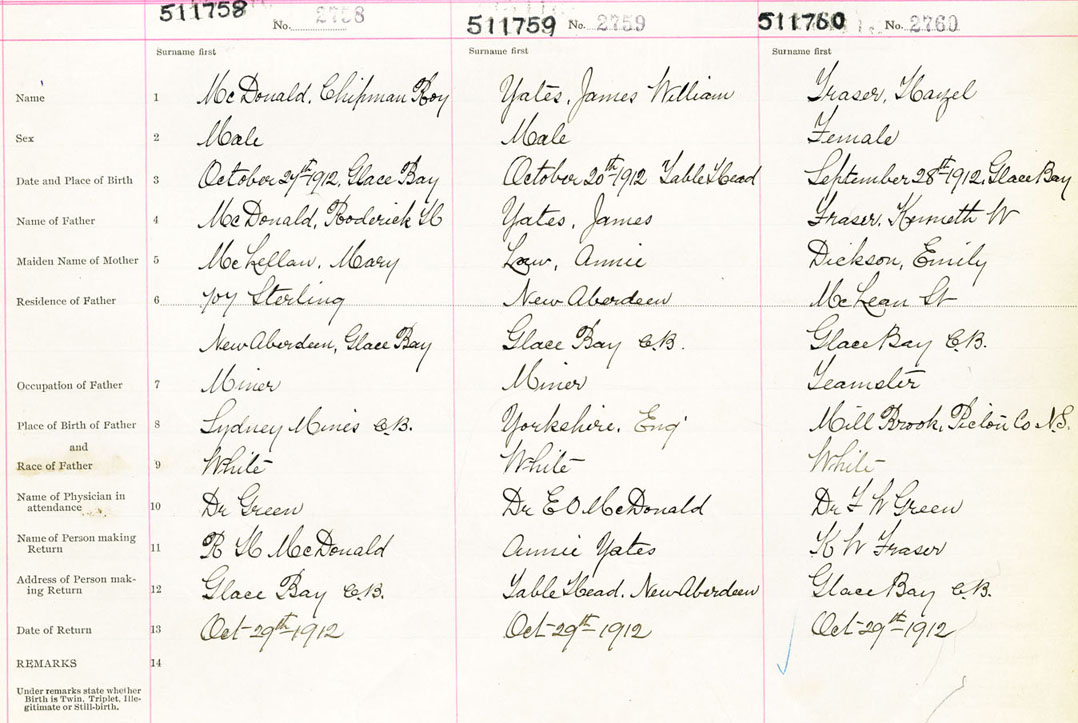 511758 No. 2758 511759 No. 2759 511760 No. 2760
Surname first Surname first Surname first
Name 1 McDonald, Chipman Roy Yates, James William Fraser, Hazel
Sex 2 Male Male Female
Date and Place of Birth 3 October 27th 1912, Glace Bay October 20th 1912 Table Head September 28th 1912, Glace Bay
Name of Father 4 McDonald, Roderick H Yates, James Fraser, Kenneth W
Maiden Name of Mother 5 McLellan, Mary Law, Annie Dickson, Emily
Residence of Father 6 Sterling New Aberdeen McLean St
New Aberdeen, Glace Bay Glace Bay C.B. Glace Bay C.B.
Occupation of Father 7 Miner Miner Teamster
Place of Birth of Father 8 Sydney Mines C.B. Yorkshire, Eng Mill Brook, Pictou Co N.S.
and
Race of Father 9 White White White
Name of Physician in
attendance 10 Dr Green Dr E O McDonald Dr F W Green
Name of Person making
Return 11 R H McDonald Annie Yates K W Fraser
Address of Person mak-
ing Return 12 Glace Bay C.B. Table Head. New Aberdeen Glace Bay C.B.
Date of Return 13 Oct 29th 1912 Oct 29th 1912 Oct 29th 1912
REMARKS 14
Under remarks state whether
Birth is Twin, Triplet, Ille-
gitimate or Still-birth.